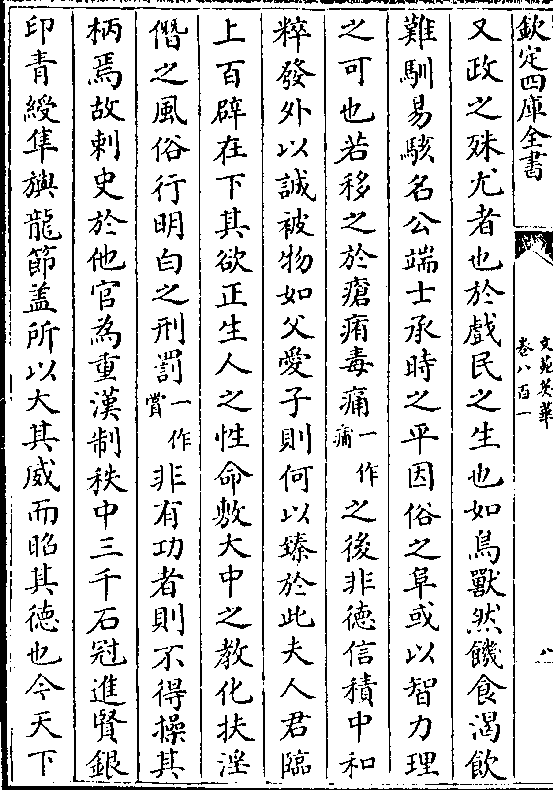 欽定四庫全書
文苑英華
卷八百一
八
又政之殊尤者也於戲民之生也如鳥獸然饑食渴飲
難馴易駭名公端士承時之平因俗之阜或以智力理
之可也若移之於瘡痏毒痛一作痡之後非德信積中和
粹發外以誠被物如父愛子則何以臻於此夫人君臨
上百辟在下其欲正生人之性命敷大中之教化扶淫
僭之風俗行明白之刑罰一作賞非有功者則不得操其
柄焉故刺史於他官為重漢制秩中三千石冠進賢銀
印青綬隼旟龍節蓋所以大其威而昭其德也今天下